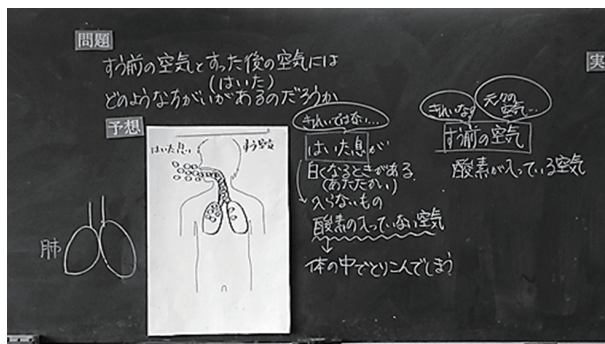 問題
すう前の空気とすった後の空気には
(はいた)
どのようなちがいがあるのだろうか
予想
はいた息
すう空気
肺
きれいではない…
はいた息が
白くなるときがある
(あたたかい)
入らないもの
酸素の入っていない空気
体の中でとりこんでしまう
きれいな
元々の
空気…
すう前の空気
酸素が入っている空気
実